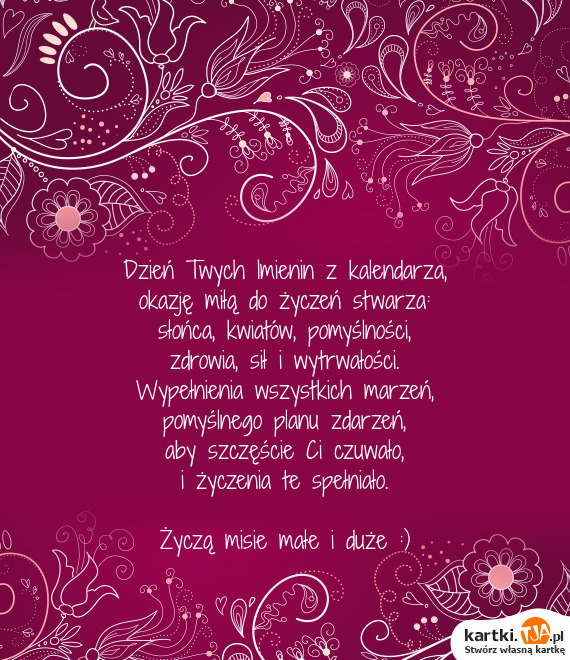 Dzień Twych Imienin z kalendarza,
okazję miłą do życzeń stwarza:
słońca, kwiatów, pomyślności,
zdrowia, sił i wytrwałości.
Wypełnienia wszystkich marzeń,
pomyślnego planu zdarzeń,
aby szczęście Ci czuwało,
i życzenia te spełniało.
Życzą misie małe i duże :)
kartki.TJA.pl
Stwórz własną kartkę